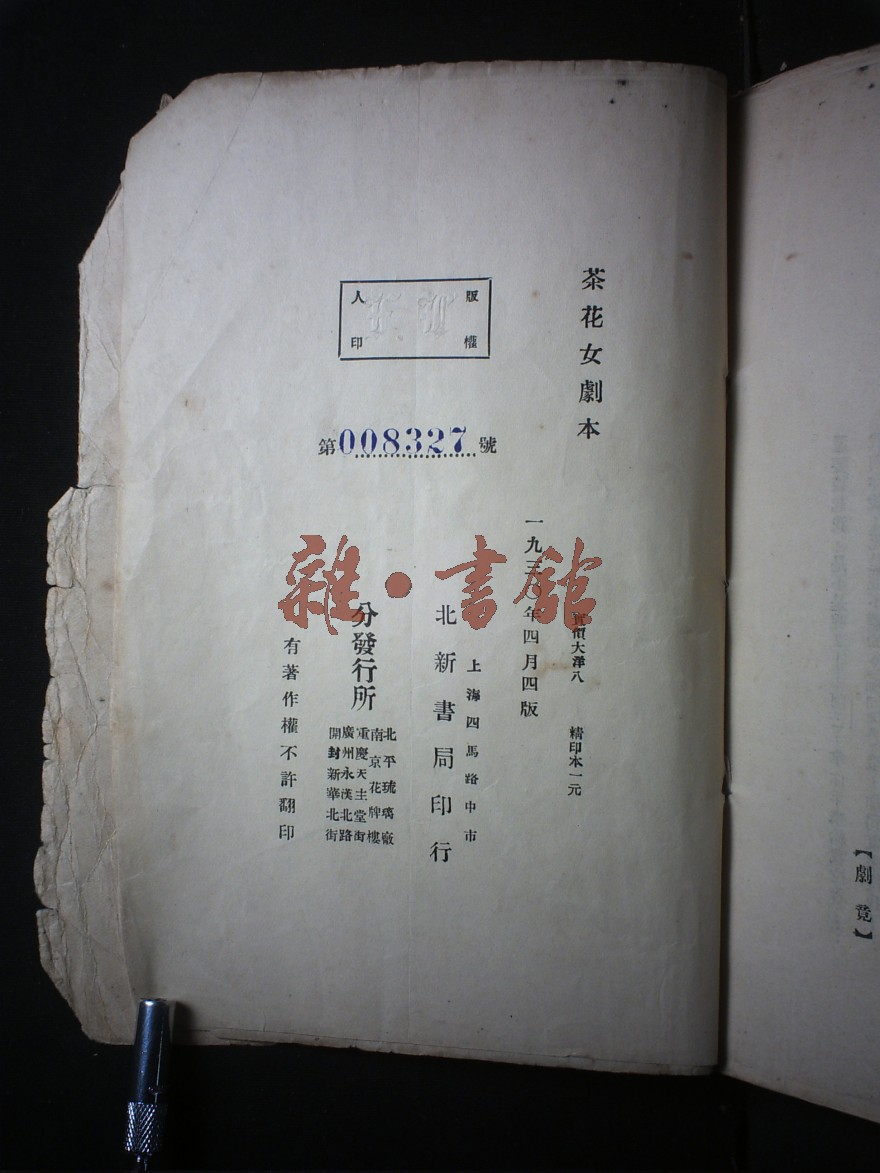 【劇竟】
茶花女劇本
實價大洋八 精印本一元
一九三〇年四月四版
上海四馬路中市
北新書局印行
版權
人印
第008327號
分發行所
北平琉璃廠
南京花牌樓
重慶天主堂街
廣州永漢北路
開封新華北街
有著作權不許翻印
雜·書館